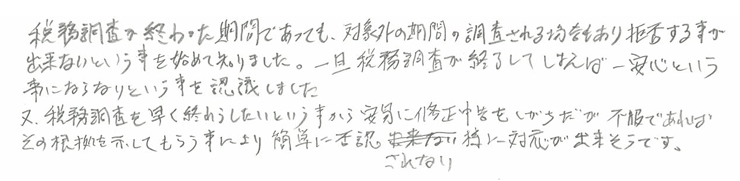 税務調査が終わった期間であっても、対象外の期間の調査される場合もあり拒否する事が
出来ないという事を始めて知りました。一旦税務調査が終了してしまえば一安心という
事にならないという事を認識しました
又、税務調査を早く終わらしたいという事から安易に修正申告をしがちだが不服であれば
その根拠を示してもらう事により簡単に否認 出来ない 様に対応が出来そうです。
されない